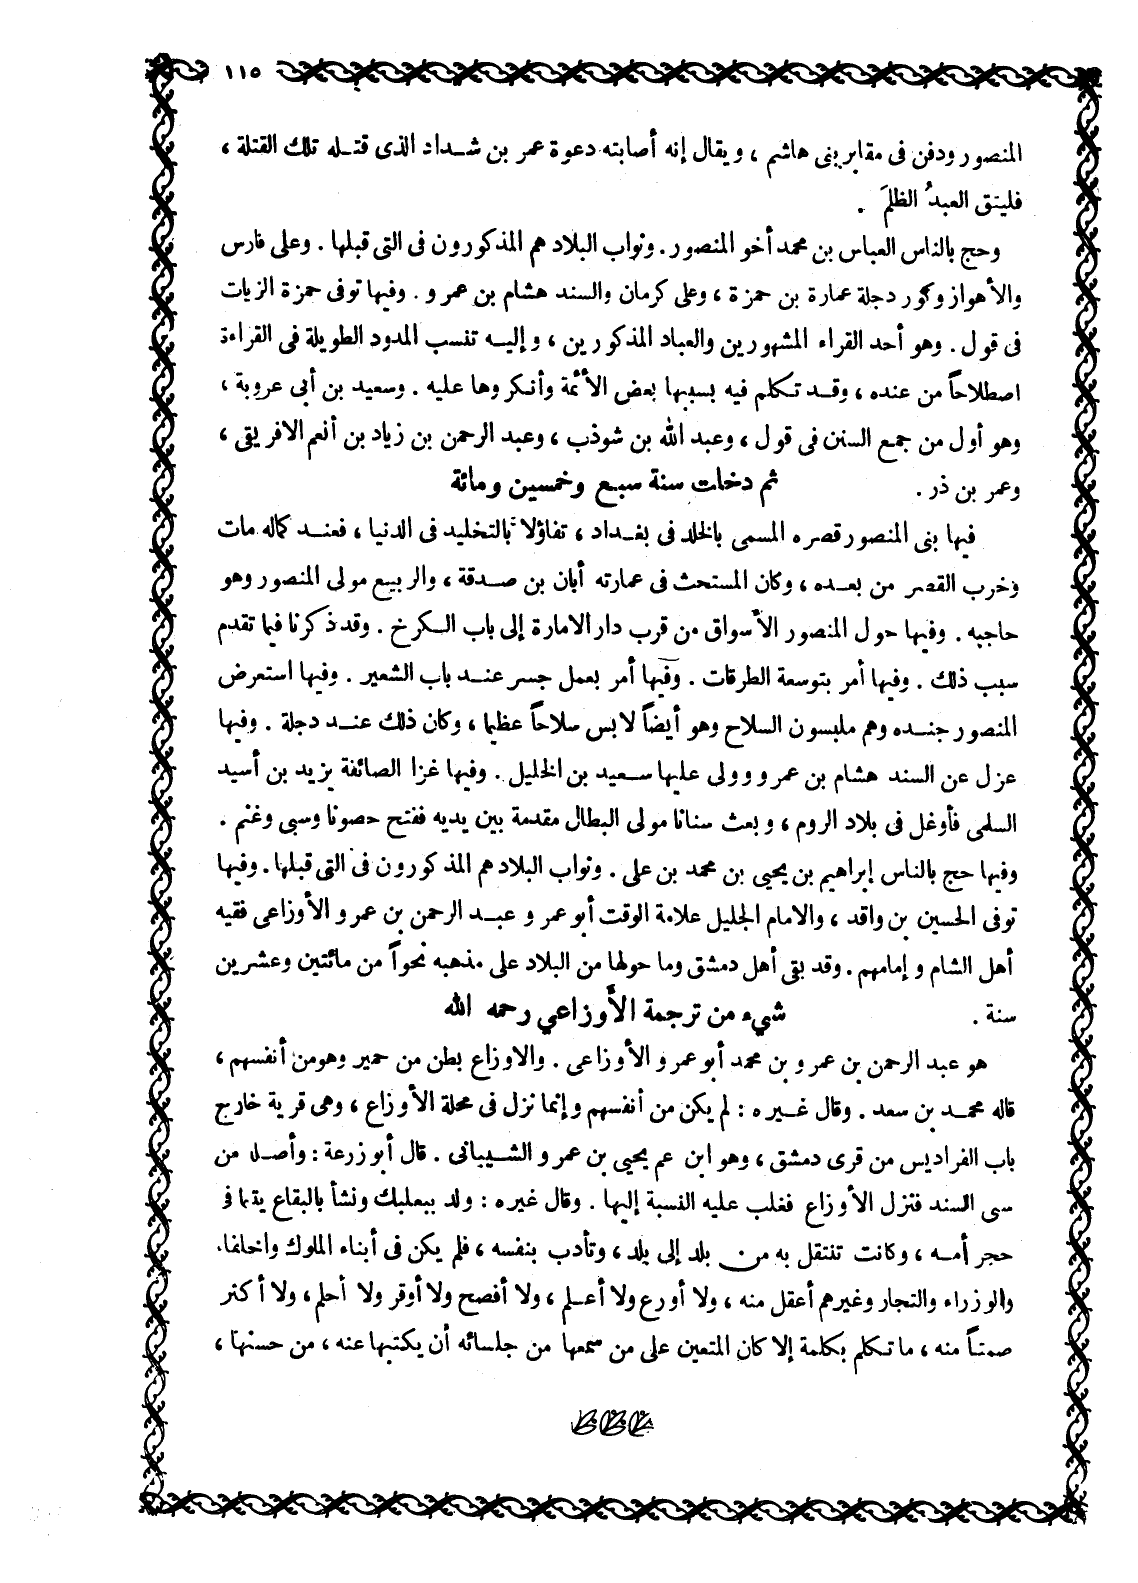 ١١٥
المنصور ودفن فى مقابر بنى هاشم ، ويقال إنه أصابته دعوة عمر بن شداد الذى قتله تلك القتلة ،
فليتق العبدُ الظلمَ .
وحج بالناس العباس بن محمد أخو المنصور . ونواب البلاد هم المذكورون فى التى قبلها . وعلى فارس
والأهواز وكور دجلة عمارة بن حمزة ، وعلى كرمان والسند هشام بن عمرو . وفيها توفى حمزة الزيات
فى قول . وهو أحد القراء المشهورين والعباد المذكورين ، وإليه تنسب المدود الطويلة فى القراءة
اصطلاحاً من عنده ، وقد تكلم فيه بسببها بعض الأئمة وأنكروها عليه . وسعيد بن أبى عروبة ،
وهو أول من جمع السنن فى قول ، وعبد الله بن شوذب ، وعبد الرحمن بن زياد بن أنعم الافريقى ،
وعمر بن ذر .
ثم دخلت سنة سبع وخمسين ومائة
فيها بنى المنصور قصره المسمى بالخلد فى بغداد ، تفاؤلا بالتخليد فى الدنيا ، فعند كماله مات
وخرب القصر من بعده ، وكان المستحث فى عمارته أبان بن صدقة ، والربيع مولى المنصور وهو
حاجبه . وفيها حول المنصور الأسواق من قرب دار الامارة إلى باب الكرخ . وقد ذكرنا فيما تقدم
سبب ذلك . وفيها أمر بتوسعة الطرقات . وفيها أمر بعمل جسر عند باب الشعير . وفيها استعرض
المنصور جنده وهم ملبسون السلاح وهو أيضاً لابس سلاحاً عظيما ، وكان ذلك عند دجلة . وفيها
عزل عن السند هشام بن عمرو وولى عليها سعيد بن الخليل . وفيها غزا الصائفة يزيد بن أسيد
السلمى فأوغل فى بلاد الروم ، وبعث سنانا مولى البطال مقدمة بين يديه ففتح حصونا وسبى وغنم .
وفيها حج بالناس إبراهيم بن يحيى بن محمد بن على . ونواب البلاد هم المذكورون فى التى قبلها . وفيها
توفى الحسين بن واقد ، والامام الجليل علامة الوقت أبو عمرو عبد الرحمن بن عمرو الأوزاعى فقيه
أهل الشام وإمامهم . وقد بقى أهل دمشق وما حولها من البلاد على مذهبه نحواً من مائتين وعشرين
سنة .
شيء من ترجمة الأوزاعي رحمه الله
هو عبد الرحمن بن عمرو بن محمد أبو عمرو الأوزاعى . والاوزاع بطن من حمير وهو من أنفسهم ،
قاله محمد بن سعد . وقال غيره : لم يكن من أنفسهم وإنما نزل فى محلة الأوزاع ، وهى قرية خارج
باب الفراديس من قرى دمشق ، وهو ابن عم يحيى بن عمرو الشيبانى . قال أبو زرعة : وأصله من
سبى السند فنزل الأوزاع فغلب عليه النسبة إليها . وقال غيره : ولد ببعلبك ونشأ بالبقاع يتيما فى
حجر أمه ، وكانت تنتقل به من بلد إلى بلد ، وتأدب بنفسه ، فلم يكن فى أبناء الملوك والخلفاء
والوزراء والتجار وغيرهم أعقل منه ، ولا أورع ولا أعلم ، ولا أفصح ولا أوقر ولا أحلم ، ولا أكثر
صمتاً منه ، ما تكلم بكلمة إلا كان المتعين على من سمعها من جلسائه أن يكتبها عنه ، من حسنها ،